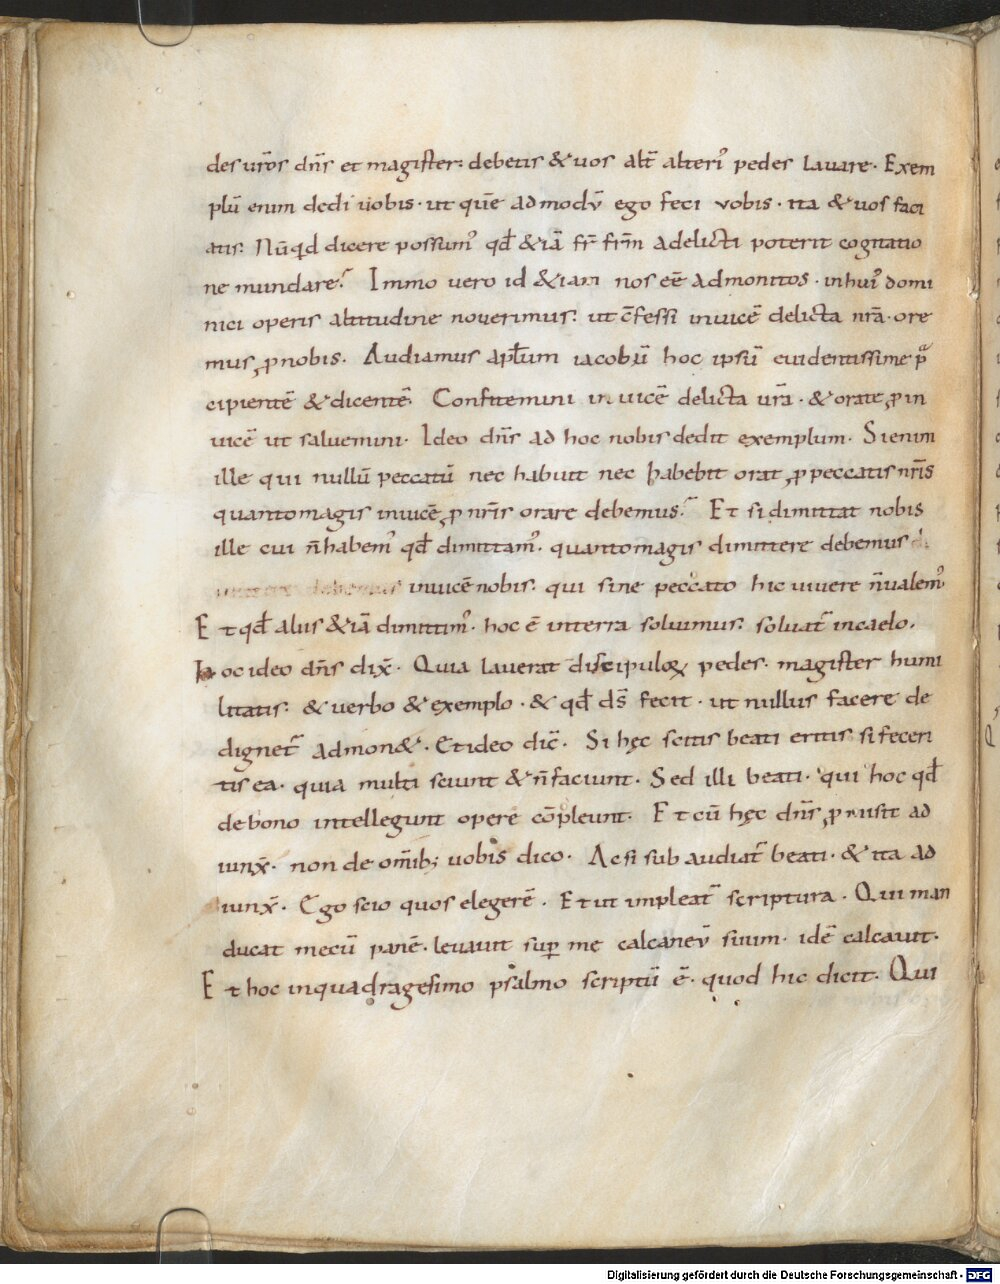 des ur̄os dn̄s et magister: debetis & uos alt̄ alteri᾽ pedes Lauare· Exem
plū enim dedi uobis· ut quē ad modū ego feci vobis· ita & uos faci
atis: Nūq̄d dicere possum᾽ qd̄ &iā fr̄ fr̄m a delicti poterit cognatio
ne mundare? Immo vero id &iam nos eē admonitos· in hui᾽ domi
nici operis altitudine noverimus: ut c̄fessi inuicē delicta nr̄a· ore
mus ꝓ nobis. Audiamus apl̄um iacobū hoc ipsū euidentissime p̄
cipientē & dicentē Confitemini in uicē delicta ur̄a· & orate ꝓ in
uicē ut saluemini· Ideo dn̄s ad hoc nobis dedit exemplum· Si enim
ille qui nullū peccatū nec habuit nec habebit orat ꝓ peccatis nr̄is
quanto magis inuicē ꝓ nr̄is orare debemus? Et si dimittat nobis
ille cui n̄ habem᾽ qd̄ dimittam᾽· quanto magis dimittere debemus di
mittere debemus inuicē nobis: qui sine peccato hic uiuere n̄ ualem᾽
Et qd̄ aliis &iā dimittim᾽· hoc ē in terra soluimus: soluat̄ in caelo.
Hoc ideo dn̄s dix̄· Quia lauerat discipuloꝝ pedes· magister humi
litatis: & verbo & exemplo· & qd̄ ds̄ fecit· ut nullus facere de
dignet̄ admon&· Et ideo dic̄· Si hęc scitis beati eritis si feceri
tis ea· quia multi sciunt & n̄ faciunt· Sed illi beati· qui hoc qd̄
de bono intellegunt opere cōpleunt· Et cū hęc dn̄s ꝓmisit ad
iunx̄· non de om̄ib; uobis dico· Ac si sub audiat̄ beati· & ita ad
iunx̄· Ego scio quos elegerē· Et ut impleat̄ scriptura· Qui man
ducat mecū panē· levavit suꝑ me calcaneū suum· idē calcavit·
Et hoc in quadragesimo psalmo scriptū ē· quod hic dicit· Qui
Digitalisierung gefördert durch die Deutsche Forschungsgemeinschaft - DFG